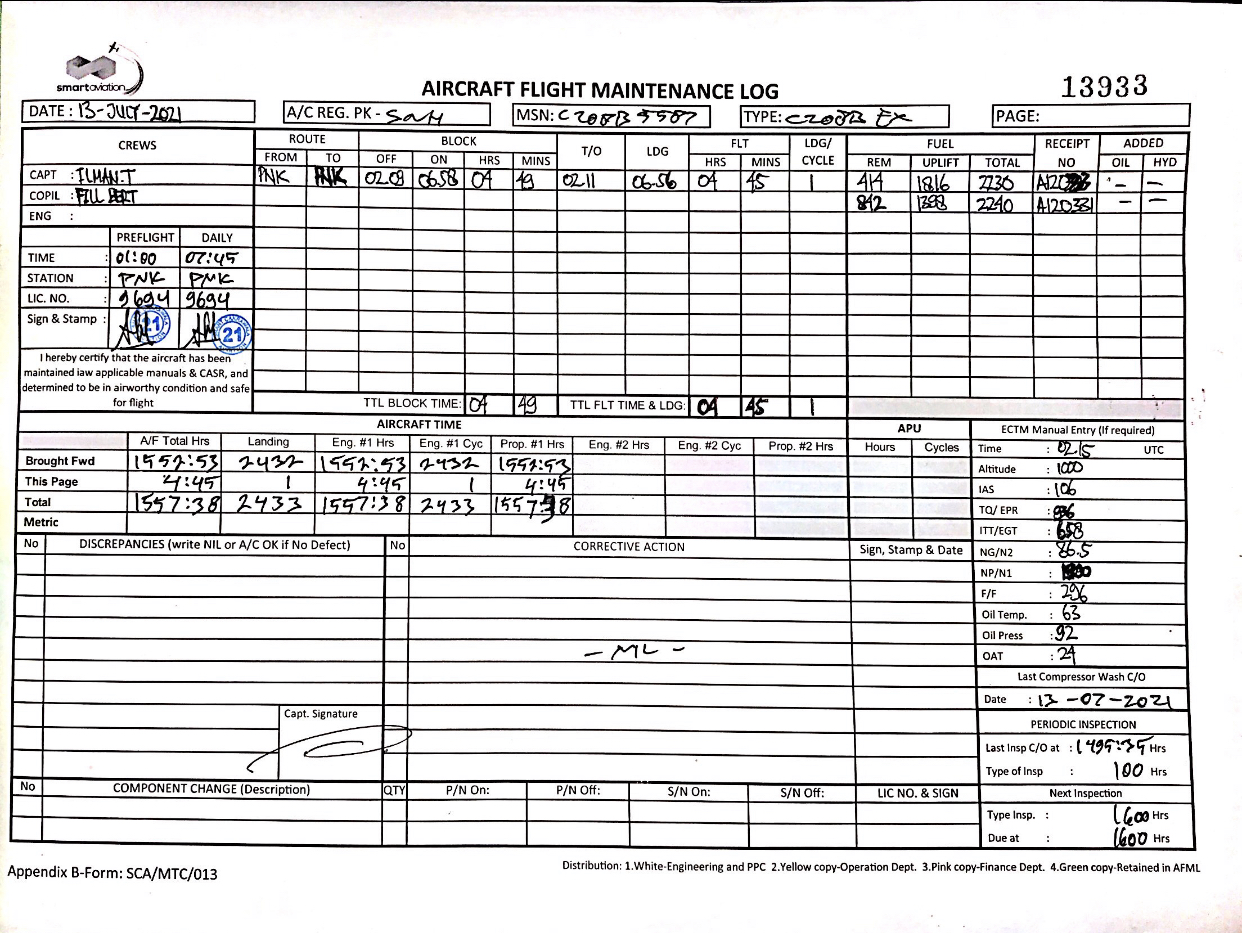 smartaviation
AIRCRAFT FLIGHT MAINTENANCE LOG
13933
DATE : 13-JULY-2021
A/C REG. PK - SAH
MSN: C208B5587
TYPE: C208B EX
PAGE:
CREWS ROUTE BLOCK T/O LDG FLT LDG/ CYCLE FUEL RECEIPT NO ADDED
FROM TO OFF ON HRS MINS HRS MINS REM UPLIFT TOTAL OIL HYD
CAPT : ILMAN.T PNK PNK 02.09 06.58 04 49 02.11 06.56 04 45 1 414 1816 2230 - -
COPIL : 842 1398 2240 A120331 - -
ENG :
PREFLIGHT DAILY
TIME : 01:00 07:45
STATION : PNK PNK
LIC. NO. : 9694 9694
Sign & Stamp : 21 21
I hereby certify that the aircraft has been
maintained iaw applicable manuals & CASR, and
determined to be in airworthy condition and safe
for flight
TTL BLOCK TIME: 04 49 TTL FLT TIME & LDG: 04 45 1
AIRCRAFT TIME APU ECTM Manual Entry (If required)
A/F Total Hrs Landing Eng. #1 Hrs Eng. #1 Cyc Prop. #1 Hrs Eng. #2 Hrs Eng. #2 Cyc Prop. #2 Hrs Hours Cycles
Brought Fwd 1552:53 2432 1552:53 2432 1552:53
This Page 4:45 1 4:45 1 4:45
Total 1557:38 2433 1557:38 2433 1557:38
Metric
Time : 02.15 UTC
Altitude : 1000
IAS : 106
TQ/ EPR :
ITT/EGT : 658
NG/N2 : 86.5
NP/N1 :
F/F : 296
Oil Temp. : 63
Oil Press : 92
OAT : 24
No DISCREPANCIES (write NIL or A/C OK if No Defect) No CORRECTIVE ACTION Sign, Stamp & Date
Last Compressor Wash C/O
Date : 13-07-2021
Capt. Signature
PERIODIC INSPECTION
Last Insp C/O at : 1495:35 Hrs
Type of Insp : 100 Hrs
No COMPONENT CHANGE (Description) QTY P/N On: P/N Off: S/N On: S/N Off: LIC NO. & SIGN
Next Inspection
Type Insp. : 1600 Hrs
Due at : 1600 Hrs
Distribution: 1.White-Engineering and PPC 2.Yellow copy-Operation Dept. 3.Pink copy-Finance Dept. 4.Green copy-Retained in AFML
Appendix B-Form: SCA/MTC/013